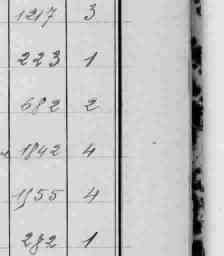 1217 3
223 1
682 2
1842 4
1955 4
282 1